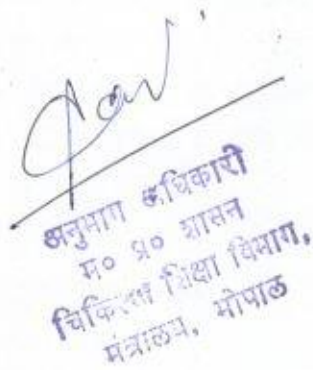 अनुभाग अधिकारी
म० प्र० शासन
चिकित्सा शिक्षा विभाग,
मंत्रालय, भोपाल